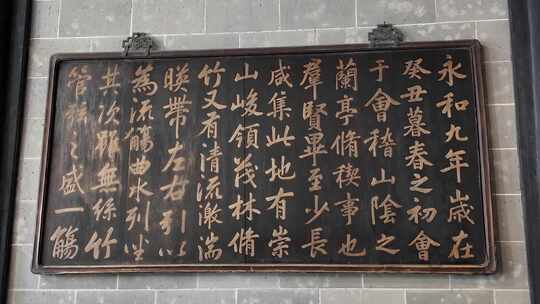 永和九年歲在
癸丑暮春之初會
于會稽山陰之
蘭亭脩稧事也
羣賢畢至少長
咸集此地有崇
山峻領茂林脩
竹又有清流激湍
暎帶左右引以
為流觴曲水列坐
其次雖無絲竹
管絃之盛一觴